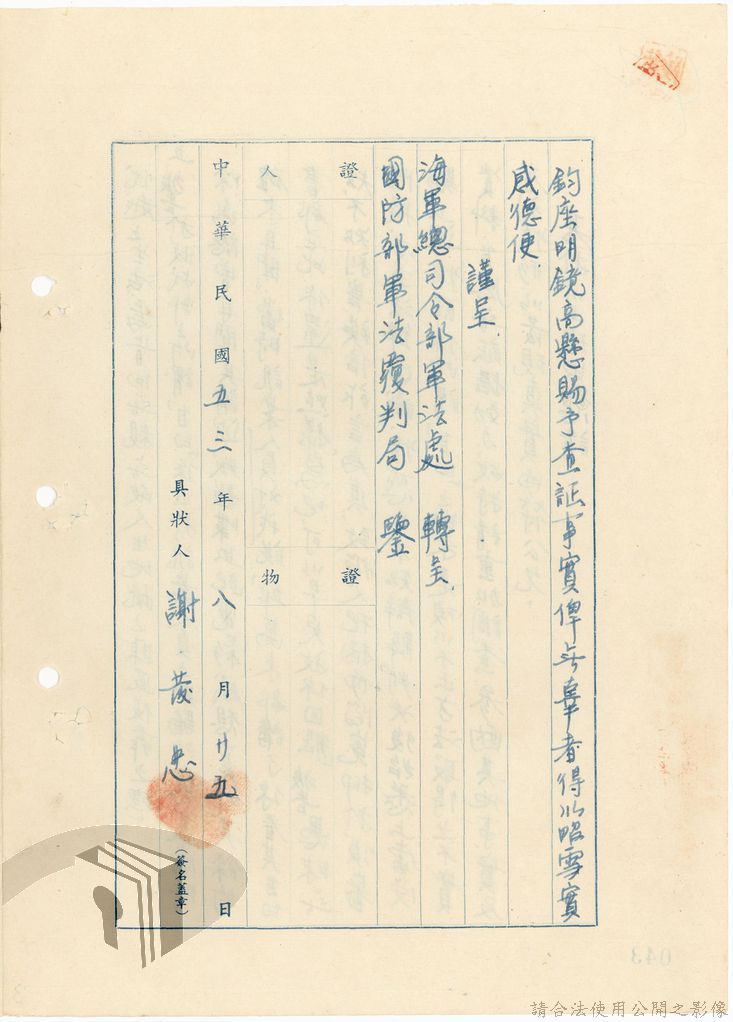 鈞座明鏡高懸賜予查証事實俾無辜者得以昭雪實
感德便
謹呈
海軍總司令部軍法處 轉呈
國防部軍法覆判局 鑒
證人
證物
中華民國五三年八月廿五日
具狀人 謝發忠 (簽名蓋章)
043
請合法使用公開之影像